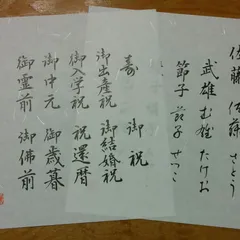 佐藤 佐藤 さとう
武雄 む雄 たけお
節子 節子 せつこ
寿 御祝
御出産祝 御結婚祝
御入学祝 祝還暦
御中元 御歳暮
御霊前 御佛前